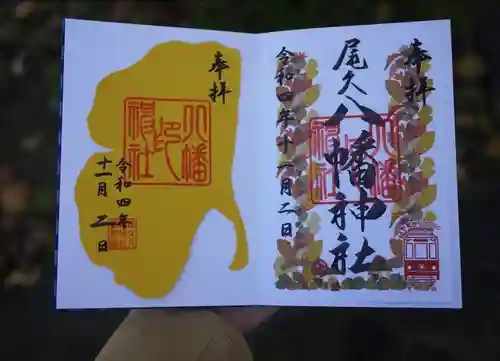 奉拝
八幡
印
神社
令和四年
十一月二日
奉拝
尾久八幡神社
令和四年十一月二日